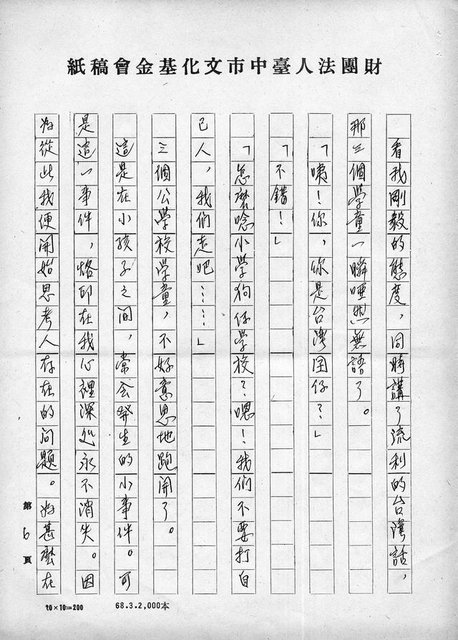 財團法人臺中市文化基金會稿紙
看我剛毅的態度，同時講了流利的台灣話，
那三個學童一瞬啞然無語了。
「咦！你，你是台灣囝仔？」
「不錯！」
「怎麼唸小學狗仔學校？嗯！我們不要打自
己人，我們走吧……」
三個公學校學童，不好意思地跑開了。
這是在小孩子之間，常會發生的小事件。可
是這一事件，烙印在我心裡深處永不消失。因
為從此我便開始思考人存在的問題。為甚麼在
第6頁
10×10=200
68.3.2,000本